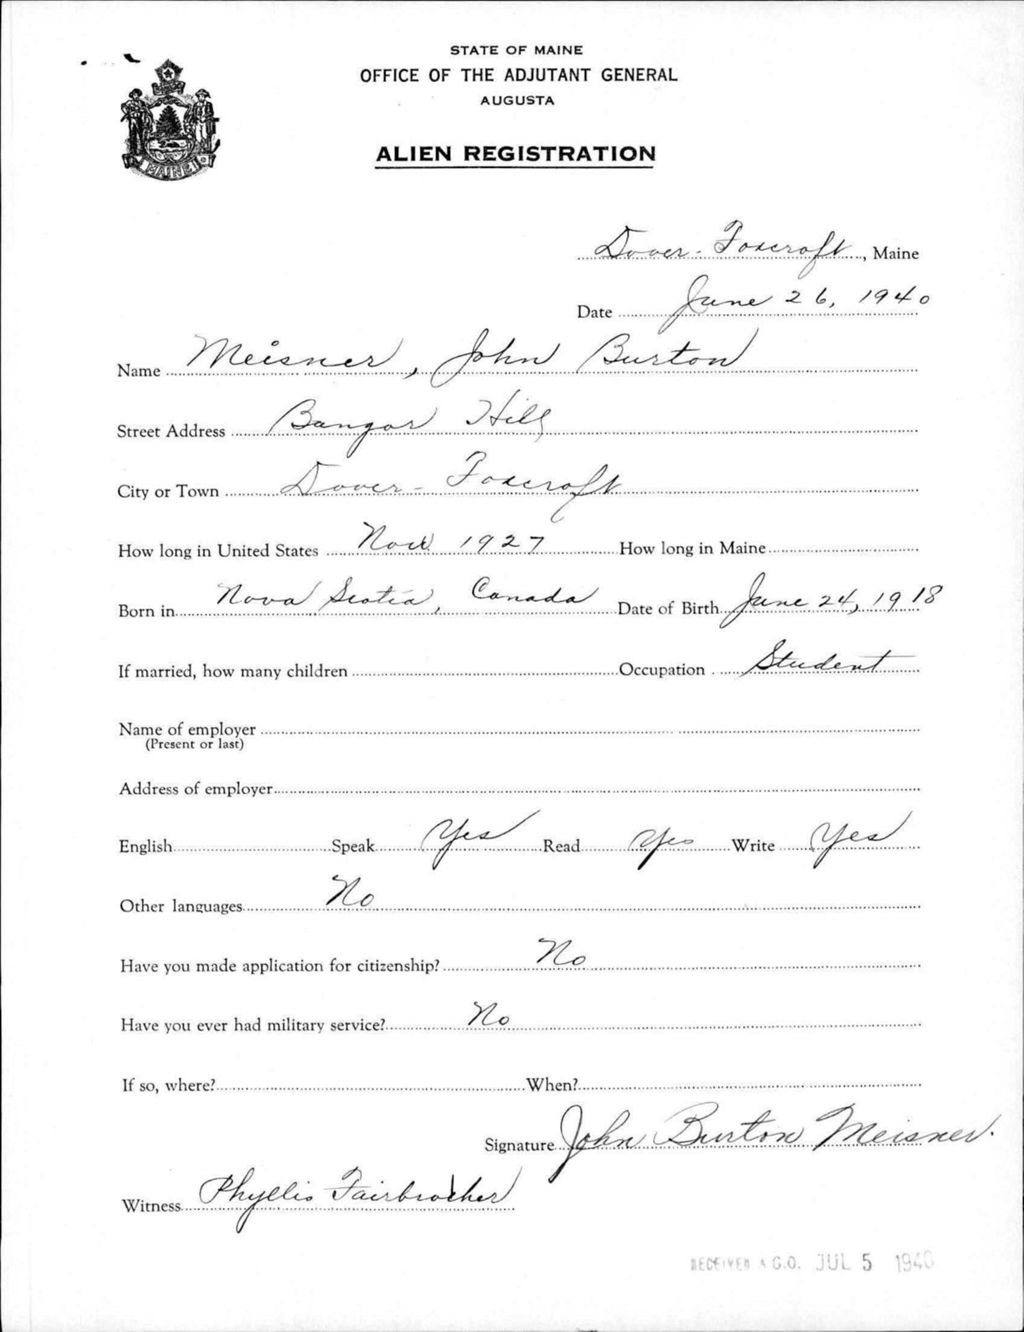 STATE OF MAINE
OFFICE OF THE ADJUTANT GENERAL
AUGUSTA
ALIEN REGISTRATION
MAINE
Dover-Foxcroft, Maine
Date June 26, 1940
Name Meisner, John Burton
Street Address Bangor Hill
City or Town Dover-Foxcroft
How long in United States 1927 How long in Maine
Born in Nova Scotia, Canada Date of Birth June 24, 1918
If married, how many children Occupation Student
Name of employer
(Present or last)
Address of employer
English Speak Yes Read Yes Write Yes
Other languages No
Have you made application for citizenship? No
Have you ever had military service? No
If so, where? When?
Signature John Burton Meisner.
Witness Phyllis Fairbrother
RECEIVED A.G.O. JUL 5 1940